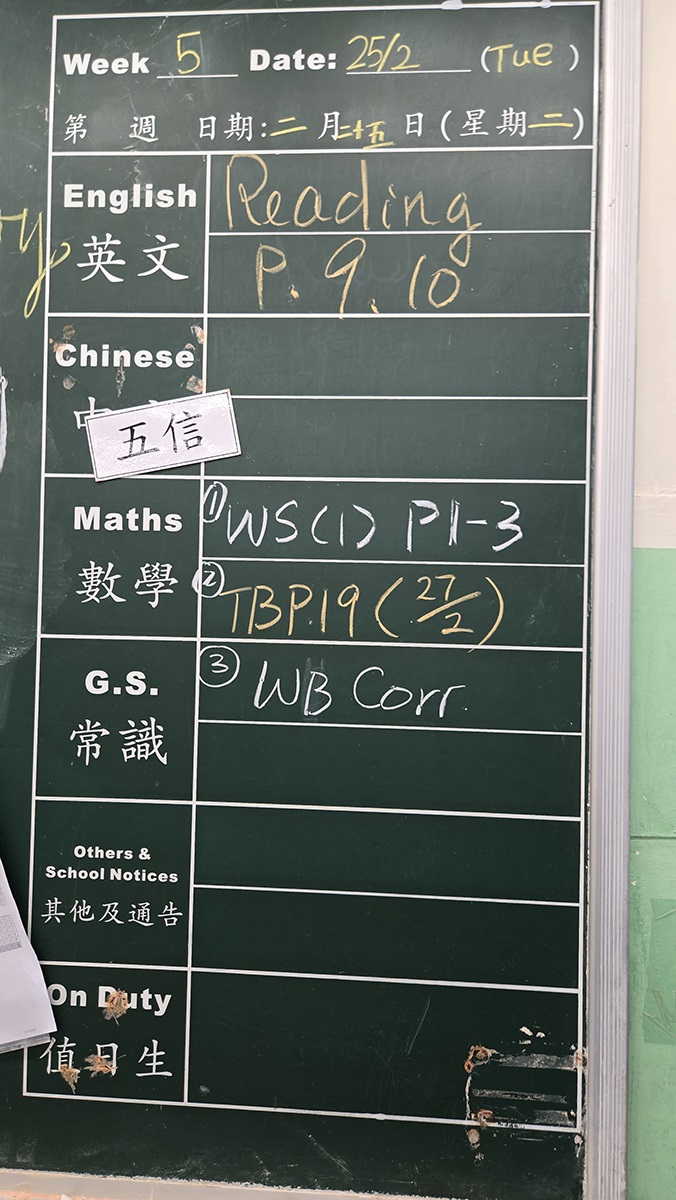 Week 5 Date: 25/2 (Tue)
第 週 日期:二月二十五日(星期二)
English Reading
英文 P. 9. 10
Chinese
五信
Maths ① WS(1) P1-3
數學 ② TBP.19 (27/2)
G.S. ③ WB Corr.
常識
Others &
School Notices
其他及通告
On Duty
值日生